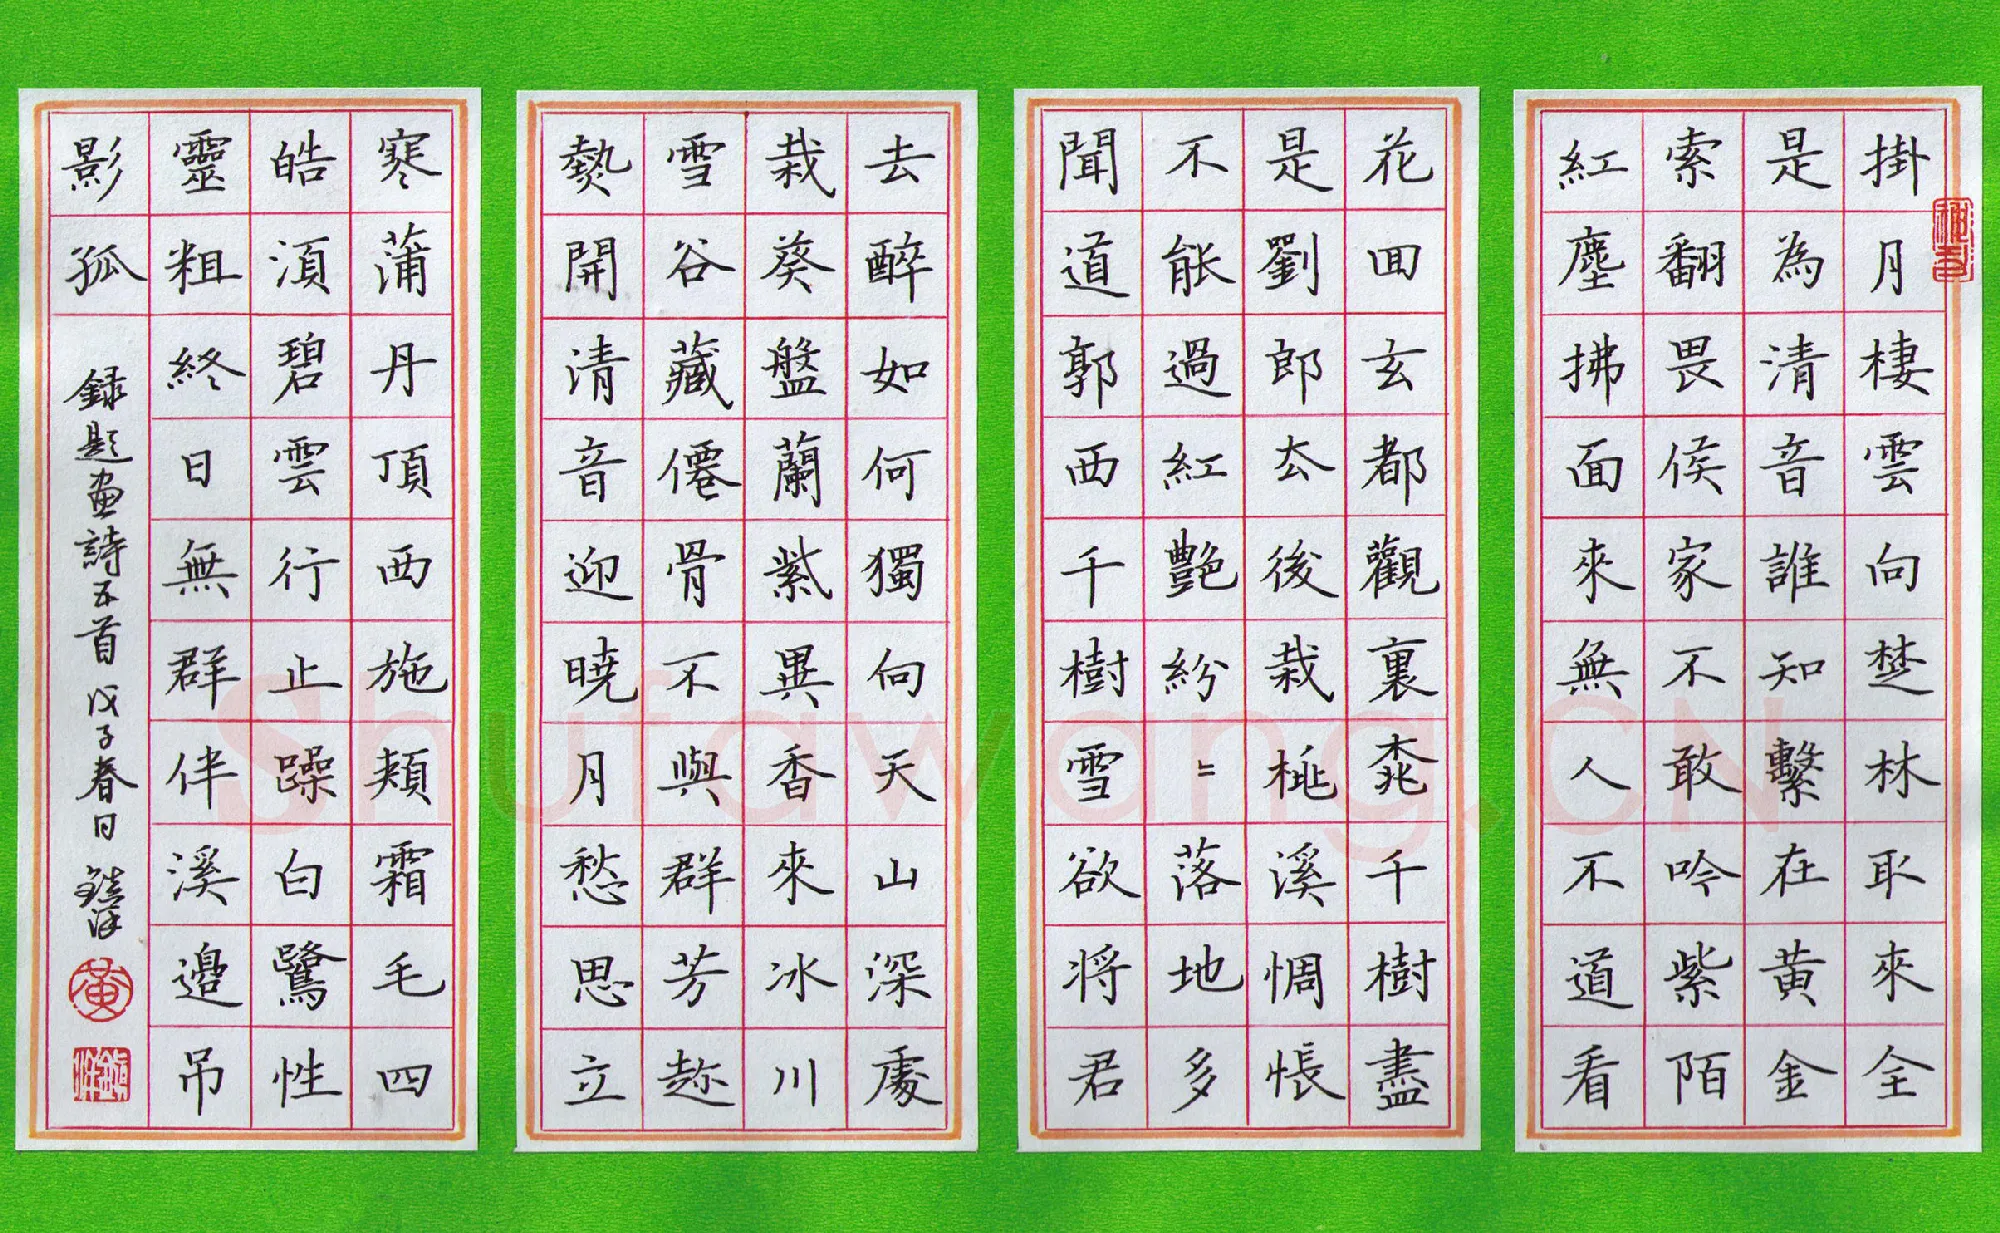 掛月棲雲向楚林取來全
是為清音誰知繫在黃金
索翻畏侯家不敢吟紫陌
紅塵拂面來無人不道看
花回玄都觀裏桃千樹盡
是劉郎去後栽桃溪惆悵
不能過紅艷紛〻落地多
聞道郭西千樹雪欲將君
去醉如何獨向天山深處
栽葵盤蘭紫異香來冰川
雪谷藏僊骨不與群芳趂
熱開清音迎曉月愁思立
寒蒲丹頂西施頰霜毛四
皓須碧雲行止躁白鷺性
靈粗終日無群伴溪邊吊
影孤
録題畫詩五首 戊子春日 鎮洋
黃
鎮洋
Shufawang.CN